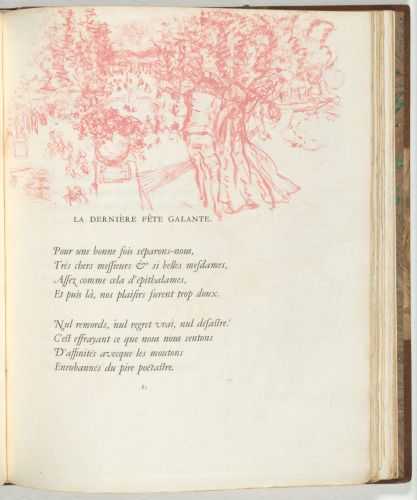 LA DERNIÈRE FÊTE GALANTE.
Pour une bonne fois séparons-nous,
Très chers messieurs & si belles mesdames,
Assez comme cela d'épithalames,
Et puis là, nos plaisirs furent trop doux.
Nul remords, nul regret vrai, nul désastre!
C'est effrayant ce que nous nous sentons
D'affinités avecque les moutons
Enrubannés du pire poëtastre.